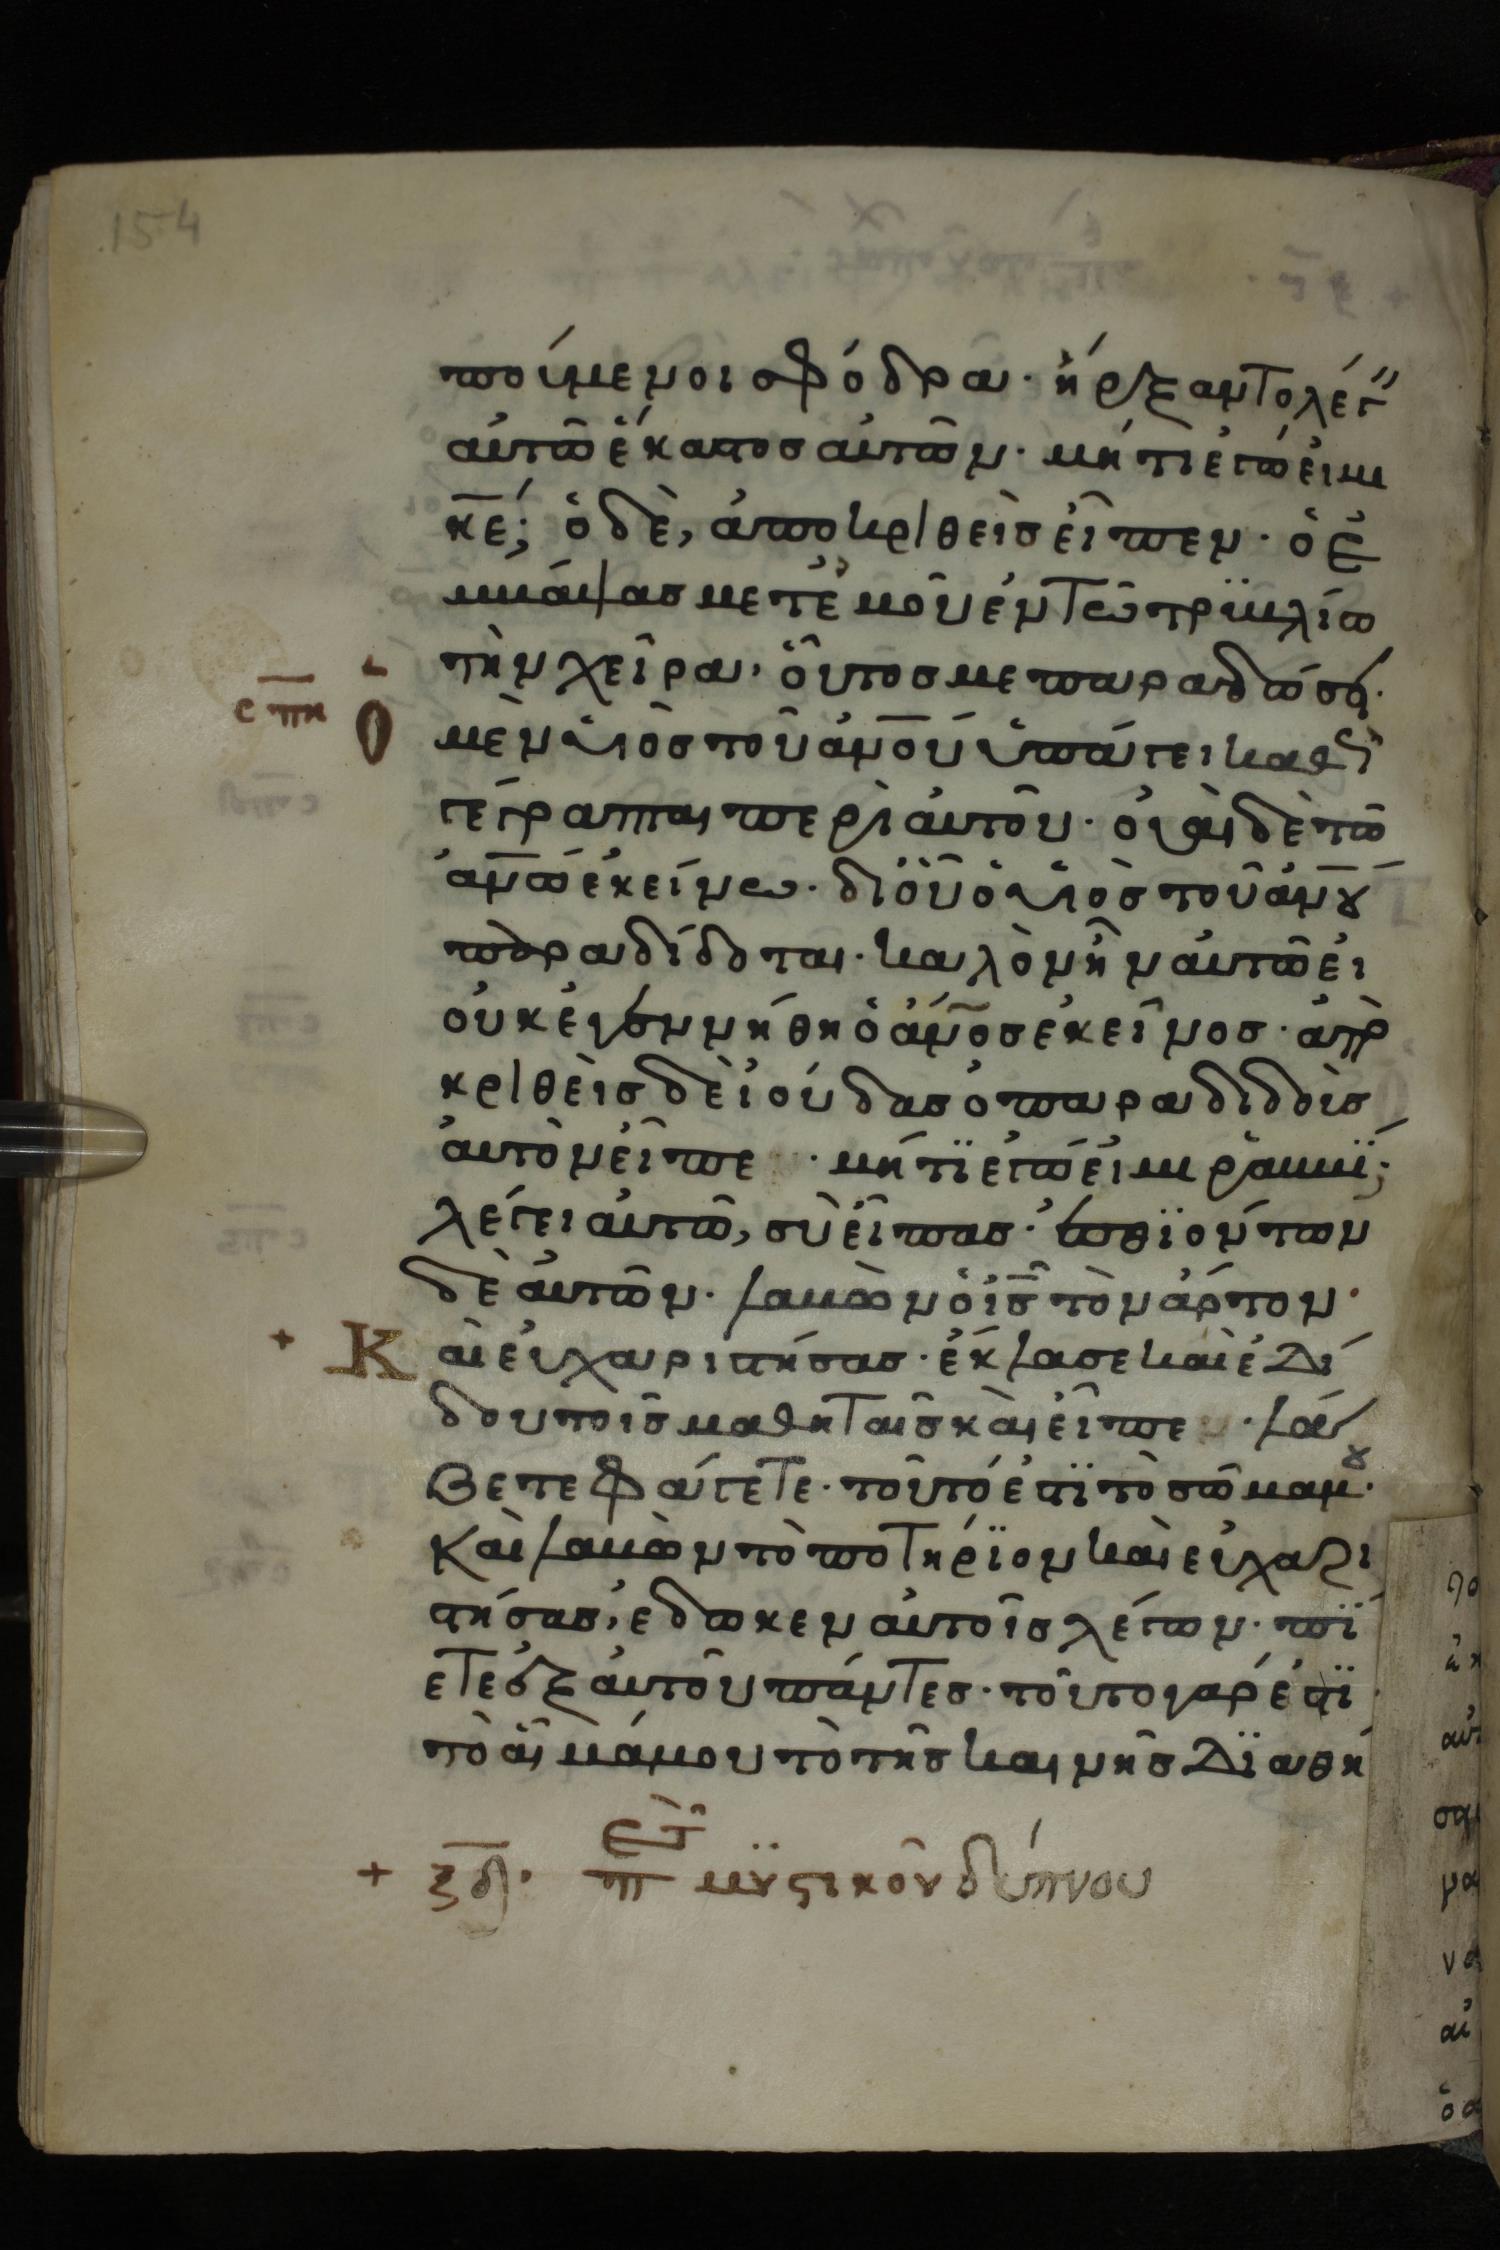 154
πούμενοι σφόδρα· ἤρξαντο λέγ
αὐτῶ ἕκαστος αὐτῶν· μήτι ἐγώ εἰμι
κε; ὁ δὲ, ἀποκριθεὶς εἶπεν· ὁ ἐμ
βάψας μετ' ἐμοῦ ἐν τῶ τρυβλίω
τὴν χεῖρα, οὗτός με παραδώσει·
σπη Ὁ
μὲν υἱὸς τοῦ ἀνου ὑπάγει καθὼς
γέγραπται περὶ αὐτοῦ· οὐαὶ δὲ τῶ
ἀνω ἐκείνω· δι' οὗ ὁ υἱὸς τοῦ ἀνου
παραδίδοται· καλὸν ἦν αὐτῶ εἰ
οὐκ ἐγεννήθη ὁ ἄνος ἐκεῖνος· ἀπο
κριθεὶς δὲ ἰούδας ὁ παραδιδοὺς
αὐτὸν εἶπε· μήτϊ ἐγώ εἰμι ῥαββΐ;
λέγει αὐτῶ, σὺ εἶπας· ἐσθϊόντων
δὲ αὐτῶν· λαβὼν ὁ ἰς τὸν ἄρτον·
+ Κ
αὶ εὐχαριστήσας· ἔκλασε καὶ ἐδί
δου τοῖς μαθηταῖς καὶ εἶπε· λά
βετε φάγετε· τοῦτό ἐστϊ τὸ σῶμα μου·
Καὶ λαβὼν τὸ ποτήρϊον καὶ εὐχαρι
στήσας, ἔδωκεν αὐτοῖς λέγων· πϊ
ετε ἐξ αὐτοῦ πάντες· τοῦτο γάρ ἐστϊ
τὸ αἷμά μου τὸ τῆς καινῆς δϊαθή
+ ξδ· περὶ τοῦ μυστικοῦ δείπνου